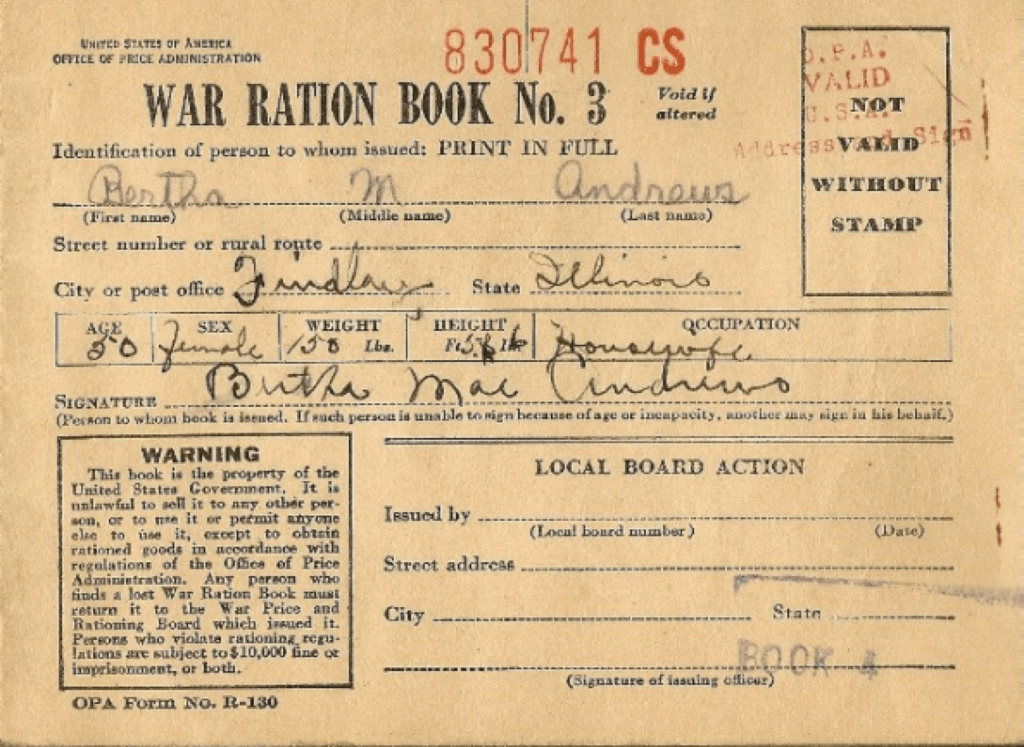 UNITED STATES OF AMERICA
OFFICE OF PRICE ADMINISTRATION
830741 CS
WAR RATION BOOK No. 3
Void if
altered
Identification of person to whom issued: PRINT IN FULL
Bertha M Andrews
(First name) (Middle name) (Last name)
Street number or rural route
City or post office Findlay State Illinois
O.P.A.
VALID
U.S.A.
Address and Sign
NOT
VALID
WITHOUT
STAMP
AGE SEX WEIGHT HEIGHT OCCUPATION
50 Female 150 Lbs. Ft. 5 In. Housewife
SIGNATURE Bertha Mae Andrews
(Person to whom book is issued. If such person is unable to sign because of age or incapacity, another may sign in his behalf.)
WARNING
This book is the property of the
United States Government. It is
unlawful to sell it to any other per-
son, or to use it or permit anyone
else to use it, except to obtain
rationed goods in accordance with
regulations of the Office of Price
Administration. Any person who
finds a lost War Ration Book must
return it to the War Price and
Rationing Board which issued it.
Persons who violate rationing regu-
lations are subject to $10,000 fine or
imprisonment, or both.
OPA Form No. R-130
LOCAL BOARD ACTION
Issued by
(Local board number) (Date)
Street address
City State
BOOK 4
(Signature of issuing officer)